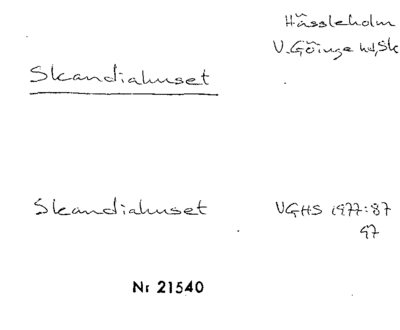 Hässleholm
V. Göinge hd, Sk
Skandiahuset
Skandiahuset
VGHS 1977:87
97
Nr 21540